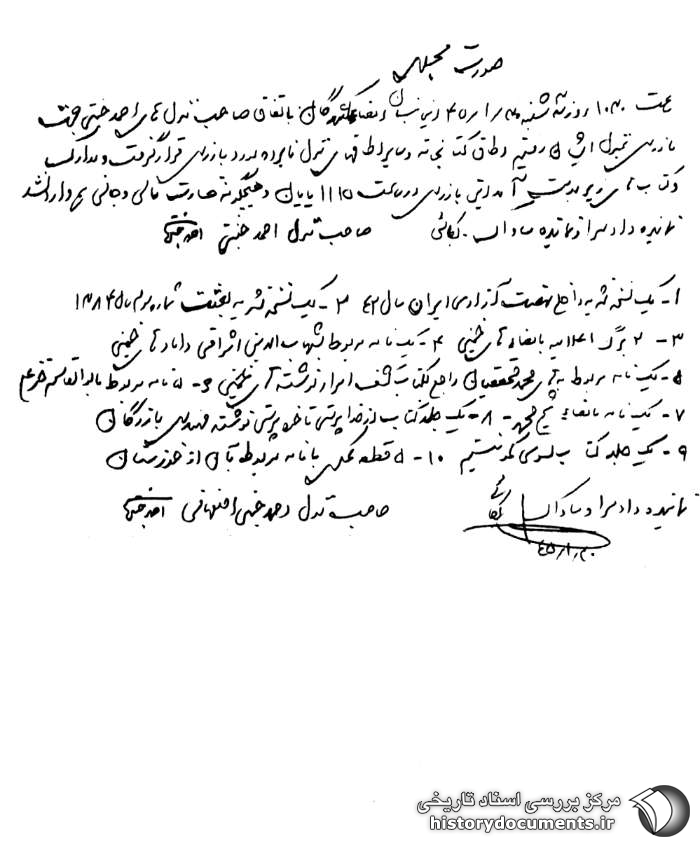 صورت مجلس
ساعت ۱۰۳۰ روز سه شنبه ۴۵/۱/۳۰ امضاءکنندگان باتفاق صاحب منزل آقای احمد جنتی جهت
بازرسی بمنزل ایشان رفته و اطاق کتابخانه و سایر اطاقهای منزل نامبرده مورد بازرسی قرار گرفت و مدارک
و کتاب های زیر بدست آمد این بازرسی در ساعت ۱۱۱۵ پایان و هیچگونه خسارت مالی و جانی بهم وارد نشد
نماینده دادسرا نماینده ساواک صاحب منزل احمد جنتی
۱- یک نسخه نشریه داخلی نهضت آزادی ایران سال ۴۲ ۲- یک نسخه نشریه بعثت شماره سوم سال ۱۳۸۴
۳- ۲ برگ اعلامیه بامضاء خمینی ۴- یک نامه مربوط شهاب الدین اشراقی داماد خمینی
۵- یک نامه مربوط به آقای محمد راجع بکتاب کشف اسرار نوشته آقای خمینی ۶- نامه مربوط به ابوالقاسم خزعلی
۷- یک نامه بامضاء شیخ محمد - ۸- یک جلد کتاب از خدا پرستی تا خود پرستی نوشته مهندس بازرگان
۹- یک جلد کتاب بسوی کمونیسم ۱۰- ۵ قطعه عکس با نامه مربوطه بآن از خوزستان
نماینده دادسرا و ساواک صاحب منزل احمد جنتی اصفهانی
۴۵/۱/۳۰
مرکز بررسی اسناد تاریخی
historydocuments.ir